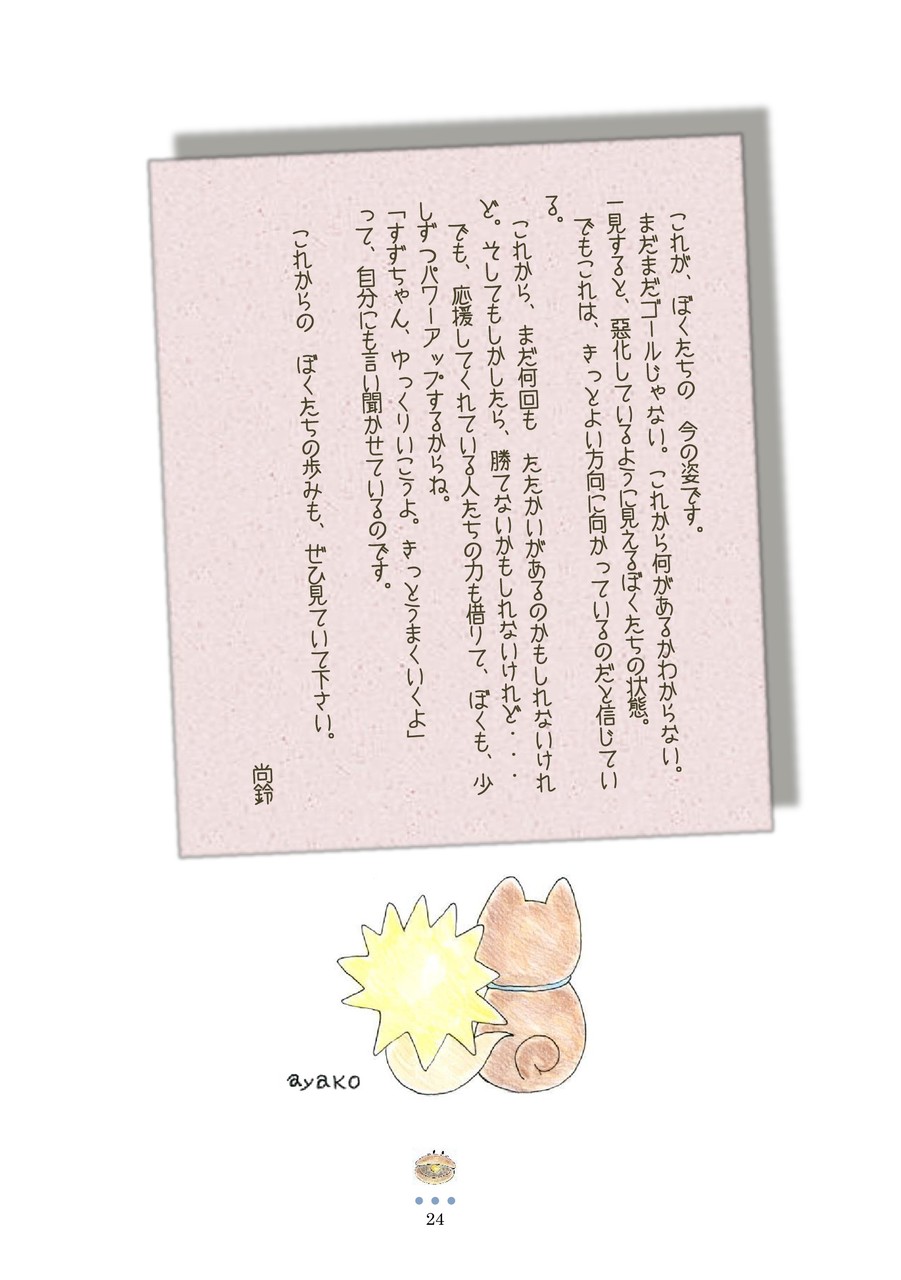 これが、ぼくたちの　今の姿です。
まだまだゴールじゃない。これから何があるかわからない。
一見すると、悪化しているように見えるぼくたちの状態。
でもこれは、きっとよい方向に向かっているのだと信じてい
る。
これから、まだ何回も　たたかいがあるのかもしれないけれ
ど。そしてもしかしたら、勝てないかもしれないけれど・・・
でも、応援してくれている人たちの力も借りて、ぼくも、少
しずつパワーアップするからね。
「すずちゃん、ゆっくりいこうよ。きっとうまくいくよ」
って、自分にも言い聞かせているのです。
これからの　ぼくたちの歩みも、ぜひ見ていて下さい。
尚鈴
ayako
24